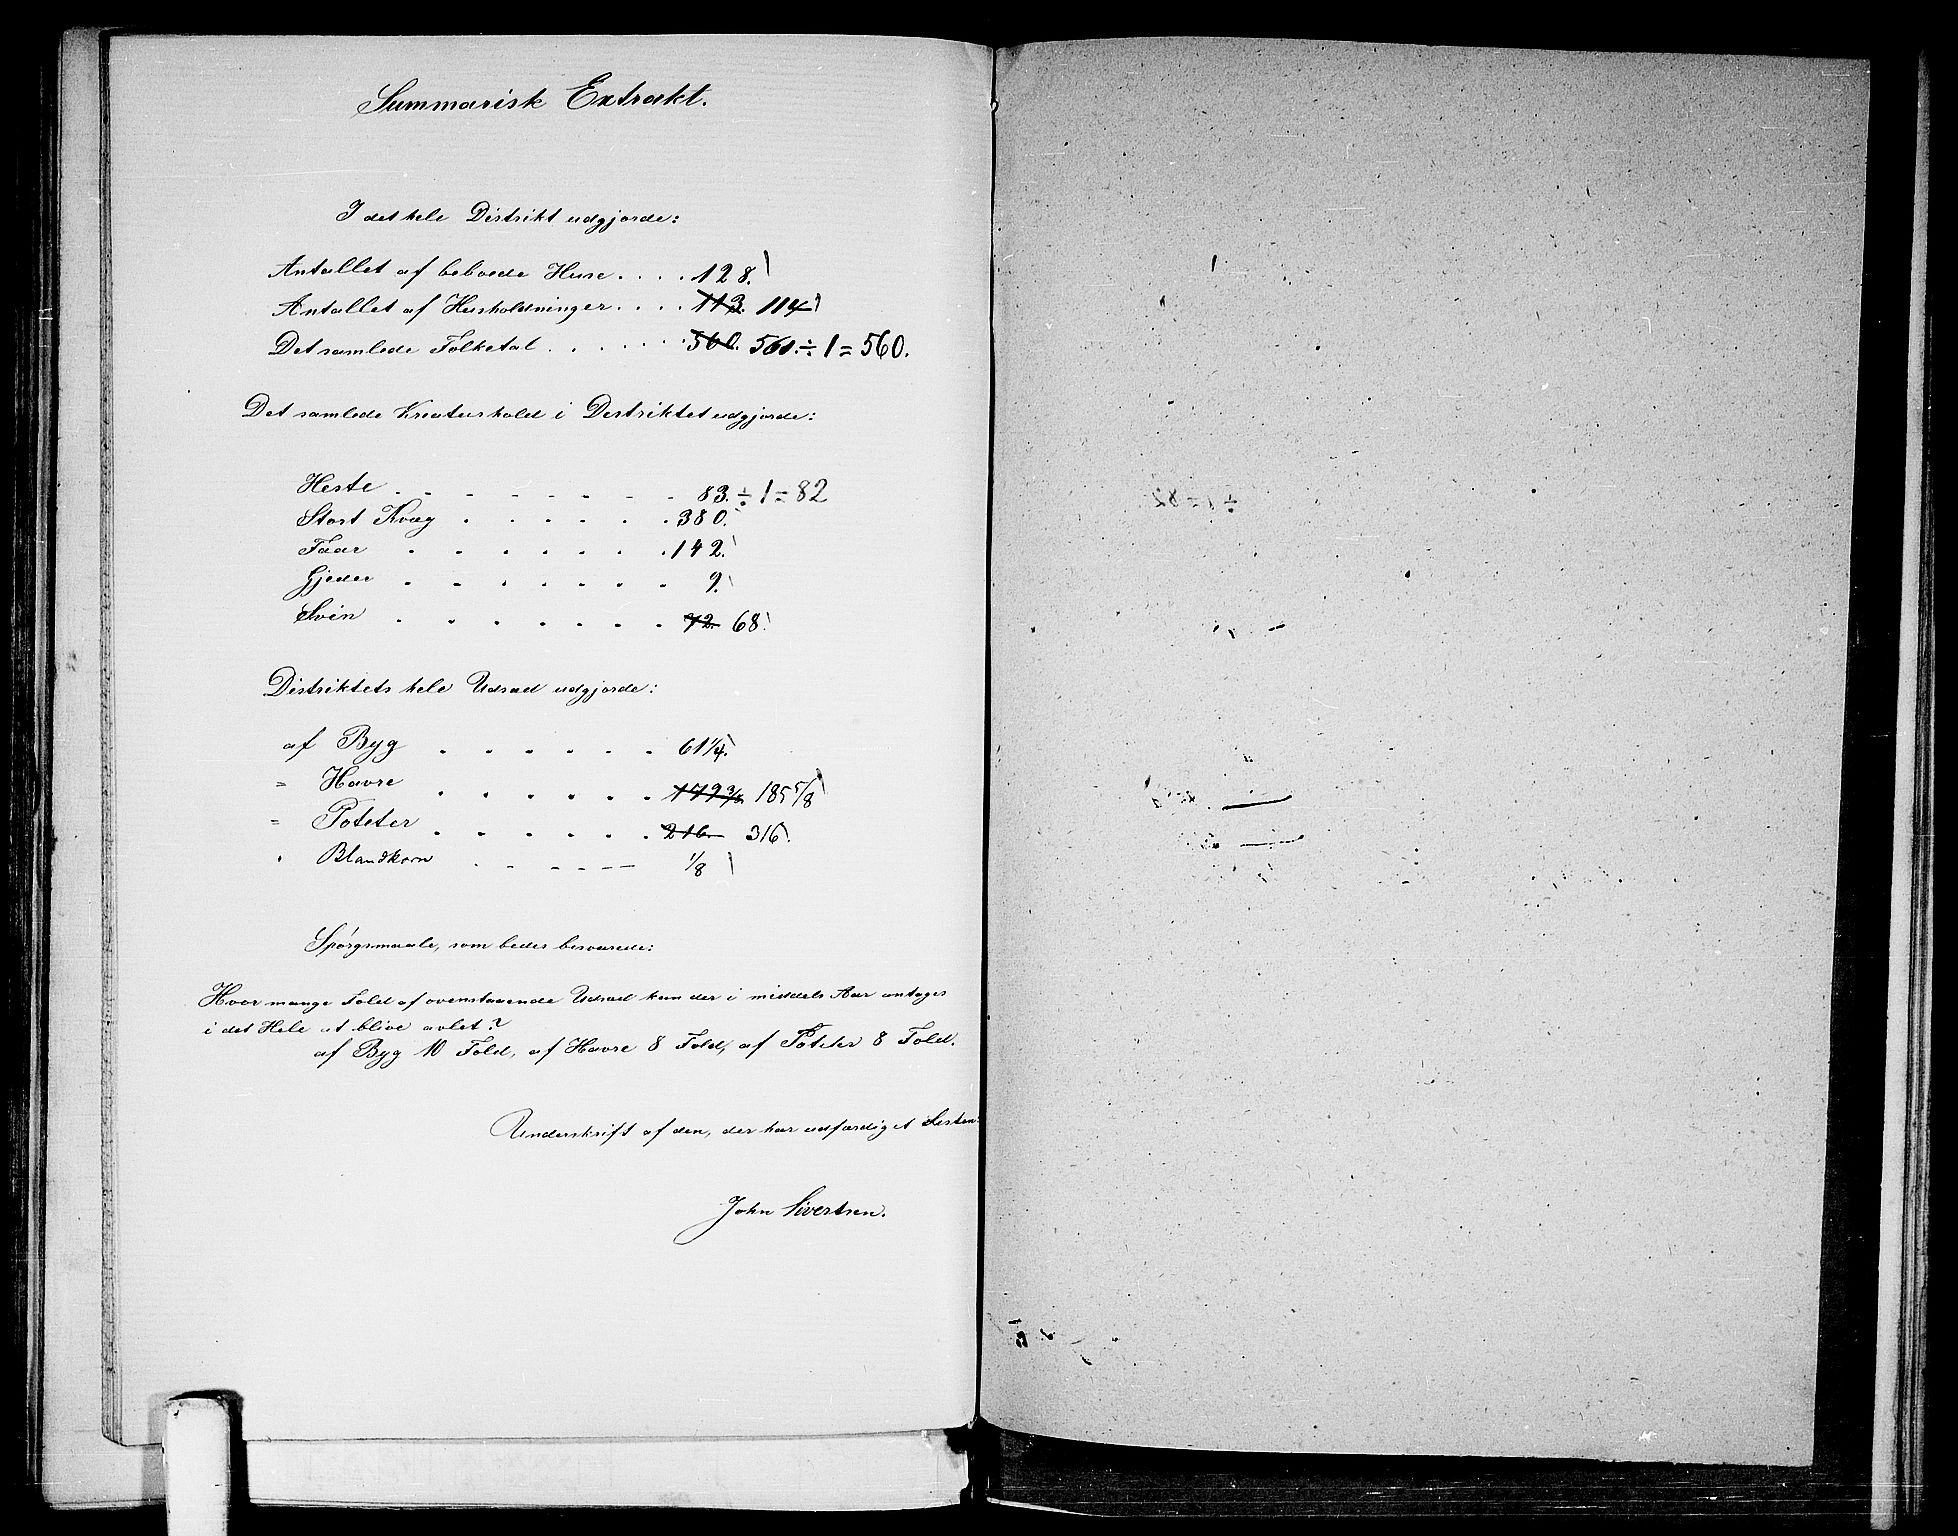 Summarisk Extrakt.
I det hele Distrikt udgjorde:
Antallet af beboede Huse . . . . 128.
Antallet af Husholdninger . . . . 113. 114
Det samlede Folketal . . . . . . 560. 561. ÷ 1 = 560.
Det samlede Kreaturhold i Distriktet udgjorde:
Heste . . . . . . . 83. ÷ 1 = 82
Stort Kvæg . . . . . . 380.
Faar . . . . . . . 142.
Gjeder . . . . . . . 9.
Svin . . . . . . . 72. 68.
Distriktets hele Udsæd udgjorde:
af Byg . . . . . . 61 1/4.
" Havre . . . . . . 185 5/8
" Poteter . . . . . . 216. 316.
" Blandkorn . . - - - — 1/8
Spørgsmaale, som bedes besvarede:
Hvor mange Fold af ovenstaaende Udsæd kan der i middels Aar antages
i det Hele at blive avlet?
af Byg 10 Fold, af Havre 8 Fold, af Poteter 8 Fold.
Underskrift af den, der har udfærdiget Listen:
John Sivertsen.